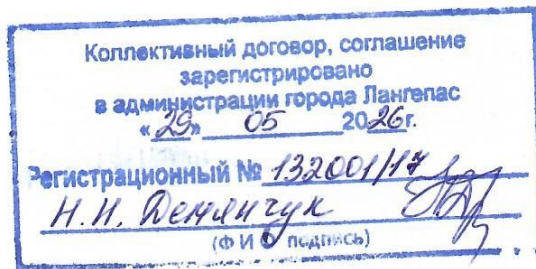 Коллективный договор, соглашение
зарегистрировано
в администрации города Лангепас
«29» 05 2026г.
Регистрационный № 132001/17
Н.Н. Демянчук
(Ф И О подпись)